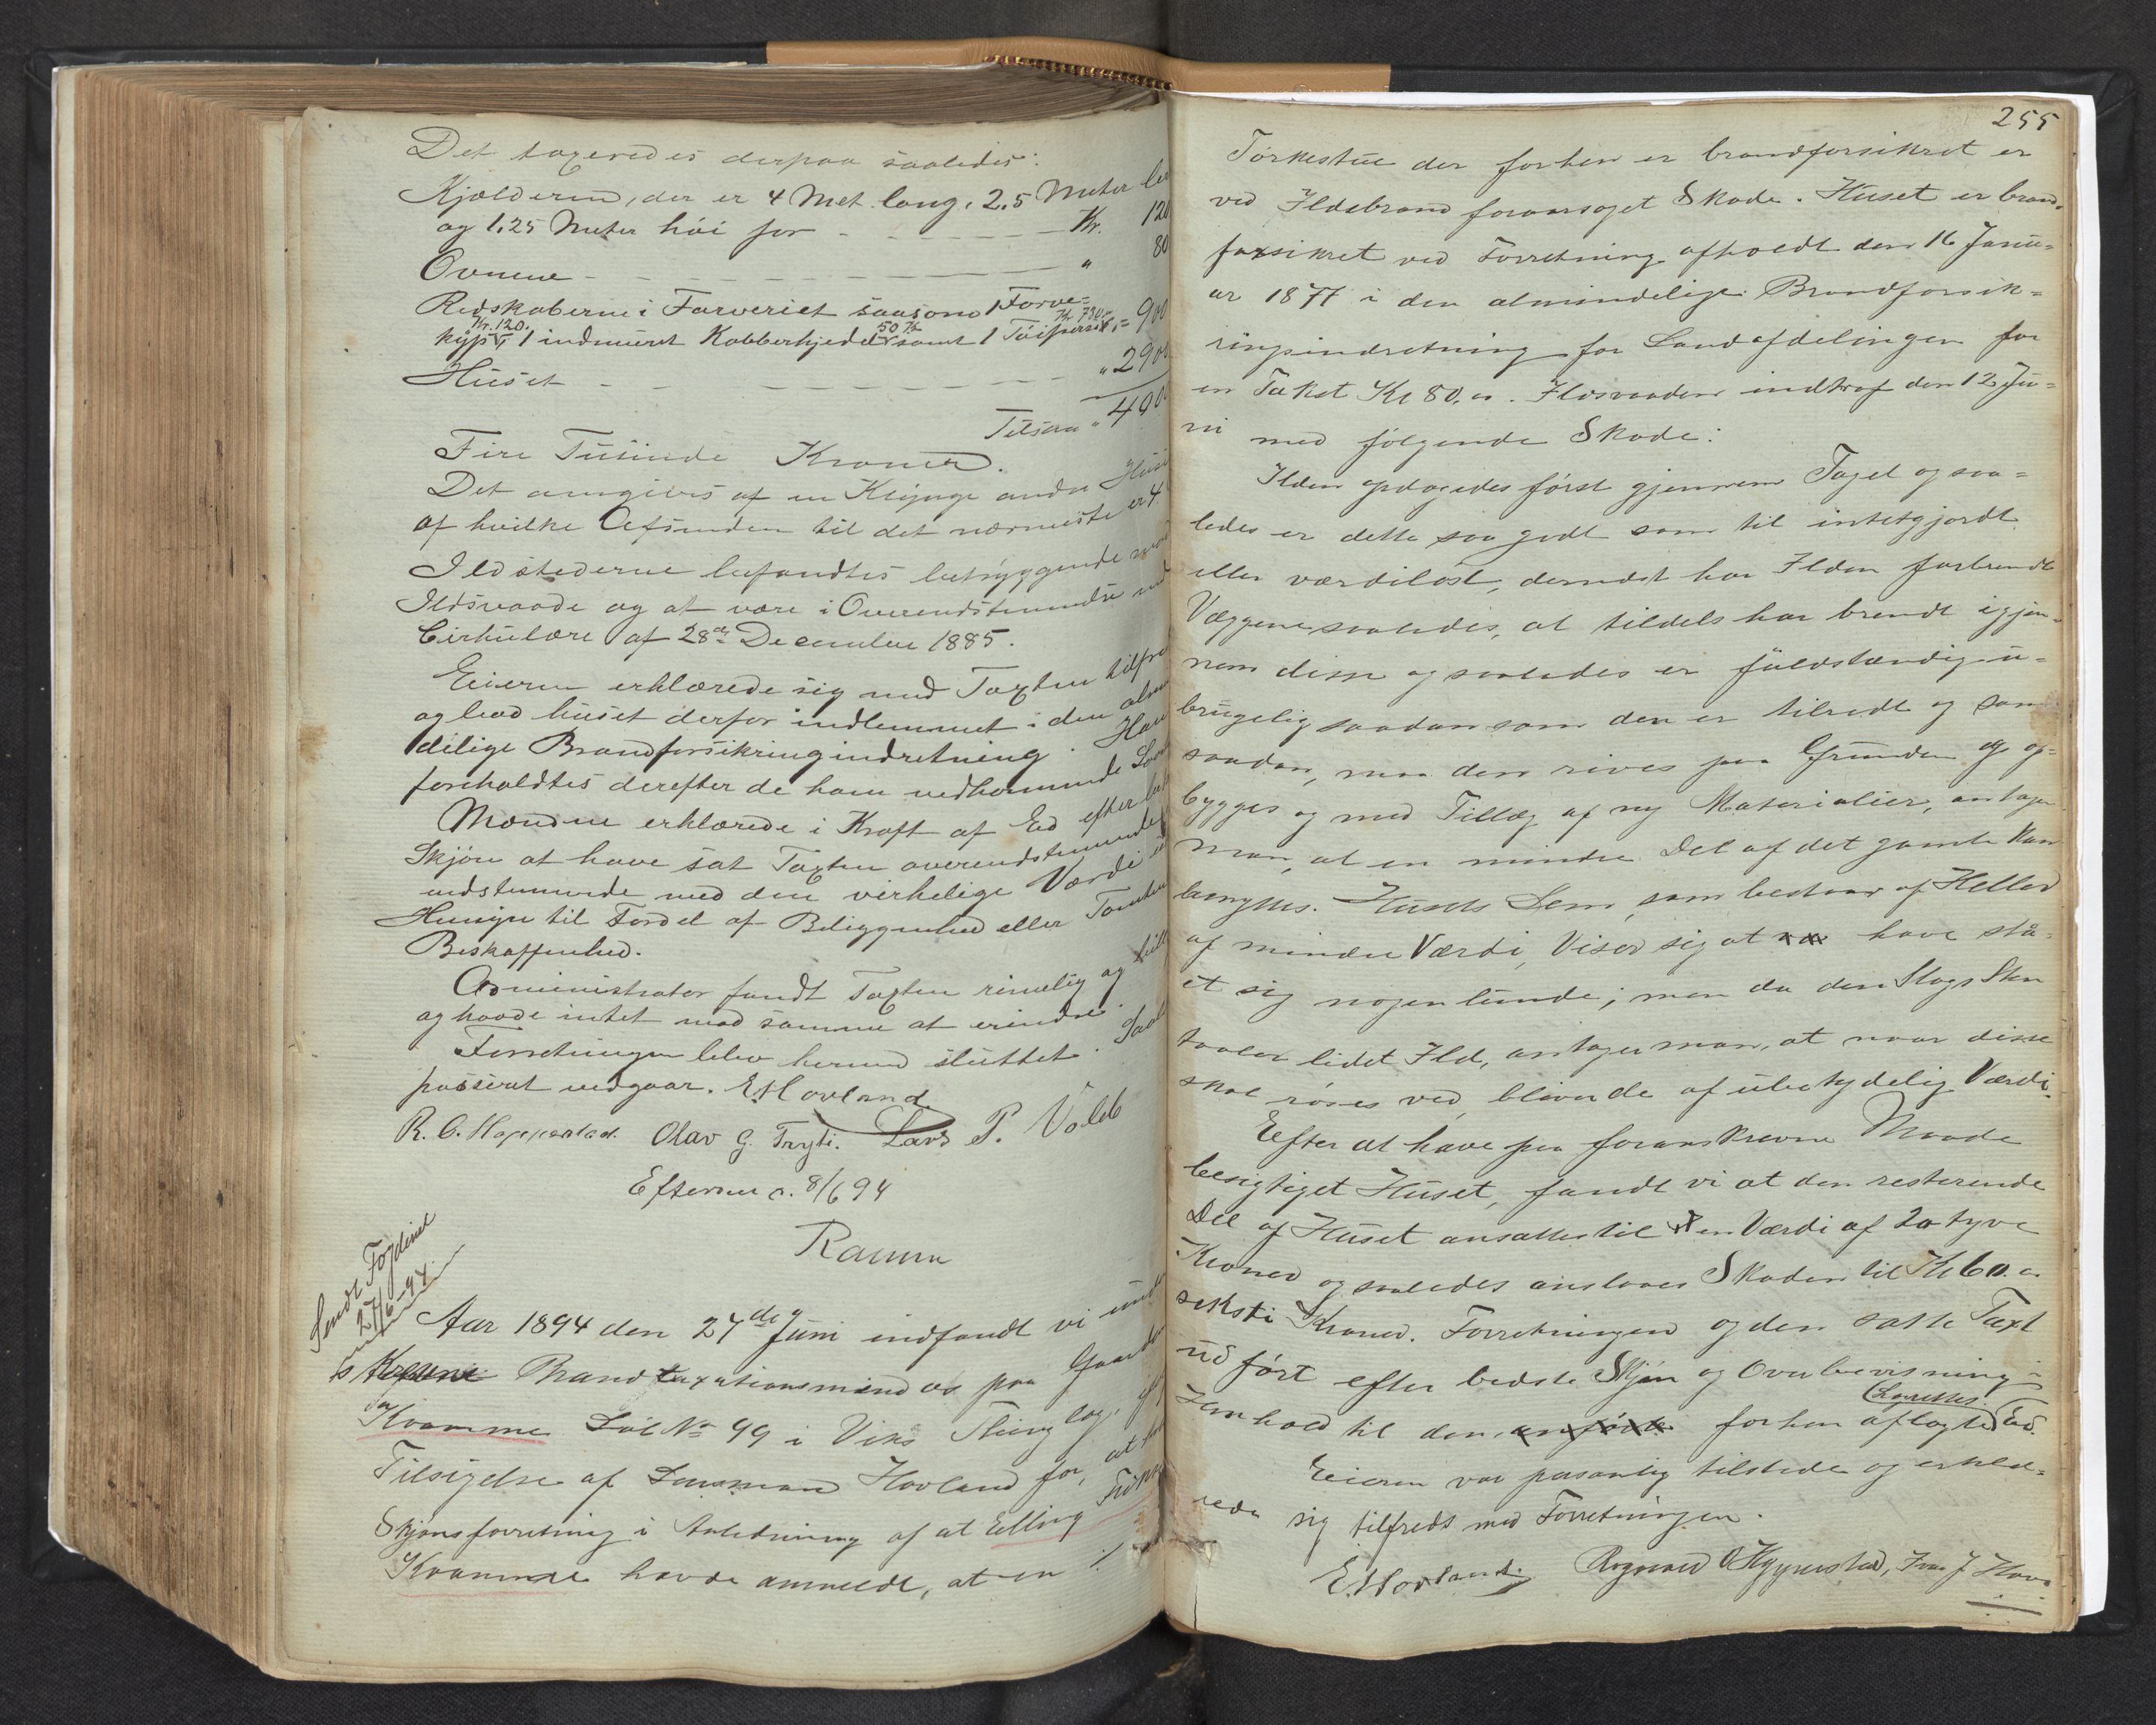 Det taxeredes derpaa saaledes:
Kjælderen, der er 4 Met. lang, 2.5 Meter
og 1.25 Meter høi for - - - Kr. 120
Ovnene - - - " 80
Redskaberne i Farveriet saasom 1 Farve-
Kr. 120. 50 Kr
1 indmuret Kobberkjedel samt 1 900
Huset - - - " 2900
Tilsam " 400
Fire Tusinde Kroner.
Det omgives af en Klynge andre Huse
af hvilke Afstanden til det nærmeste er 4
Ildstederne befandtes betryggende mod
Ildsvaade og at være i Overendstemmelse med
Cirkulære af 28de December 1885.
Eieren erklærede sig med Taxten tilfre
og blev huset derfor indlemmet i den alm
delige Brandforsikringindretning. Han
foreholdtes derefter de ham vedkommende Lov
Mændene erklærede i Kraft af Ed efter
Skjøn at have sat Taxten overendstemmende
endstemmende med den virkelige Værdi
Hensyn til Fordel af Beliggenhed eller Tomten
Beskaffenhed.
Administrator fandt Taxten rimelig og
og havde intet mod samme at erindre.
Forretningen blev hermed sluttet. Saal
passeret vedgaar. E. Hovland
R. O. Hopperstad. Olav G. Tryti. Lars P. Vold
8/6 94
Ramm
Sendt Fogden
27/6-94.
Aar 1894 den 27de Juni indfandt vi
Brandtaxationsmænd os paa Gaarden
Kvamme Løb No 99 i Viks Thinglag, efter
Tilsigelse af Lensmand Hovland for, at
Skjønsforretning i Anledning af at Elling
Kvamme havde anmeldt, at en
255
Tørkestue der forhen er brandforsikret er
ved Ildebrand foraarsaget Skade. Huset er brand-
forsikret ved Forretning afholdt den 16 Janu-
ar 1877 i den almindelige Brandforsik-
ringsindretning for Landafdelingen for
en Takst Kr 80.00. Ildsvaaden indtraf den 12 Ju-
ni med følgende Skade:
Ilden opdagedes først gjennem Taget og saa-
ledes er dette saa godt som til intetgjordt
eller værdiløst, dernæst har Ilden forbrændt
Væggene saaledes, at tildels har brændt igjen-
nem disse og saaledes er fuldstændig u-
brugelig saadan som den er tilredt og som
saadan, maa den rives paa Grunden og op-
bygges og med Tillæg af ny Materialier, antager
man, at en mindre Del af det gamle kan
benyttes. Husets Lem, som bestaar af Heller
af mindre Værdi, Viser sig at have stå-
et sig nogenlunde; men da den Slags Sten
taaler lidet Ild, antager man, at naar disse
skal røres ved, bliver de af ubetydelig Værdi.
Efter at have paa foranskrevne Maade
besigtiget Huset, fandt vi at den resterende
Del af Huset ansattes til en Værdi af 20 tyve
Kroner og saaledes anslaaes Skaden til Kr 60.00
seksti Kroner. Forretningen og den satte Taxt
udført efter bedste Skjøn og Overbevisning i
Henhold til den forhen aflagte Lagrettes Ed.
Eieren var personlig tilstede og erklæ-
rede sig tilfreds med Forretningen.
E. Hovland. Rognald O Hopperstad, Ivar J Hove